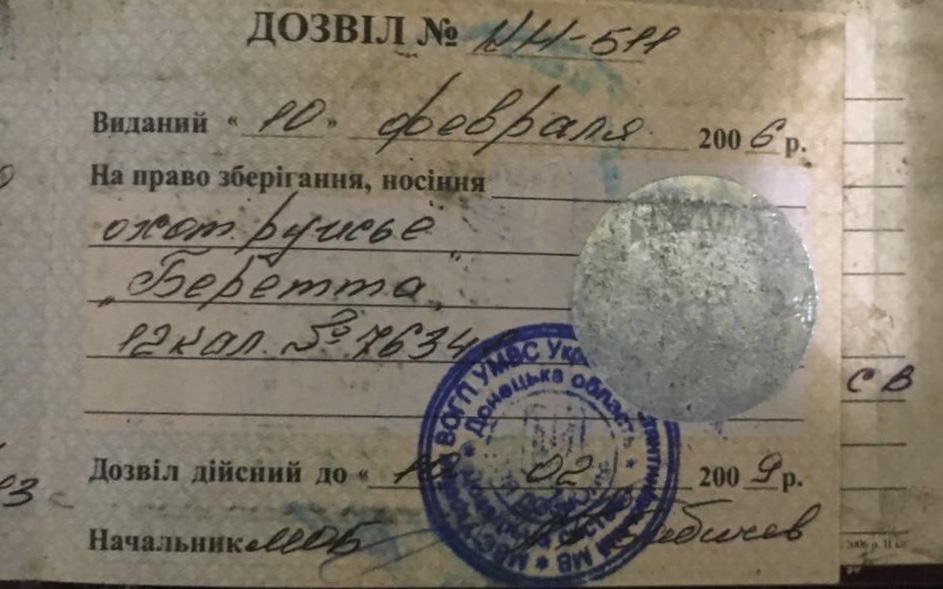 ДОЗВІЛ № НН-511
Виданий « 10 » февраля 200 6 р.
На право зберігання, носіння
охот. ружье
"Беретта"
12 кал. № 7634
Дозвіл дійсний до « 10 02 200 9 р.
Начальник МОБ Бабичев
ВОГП УМВС Укр
Донецька область
МВ
СВ